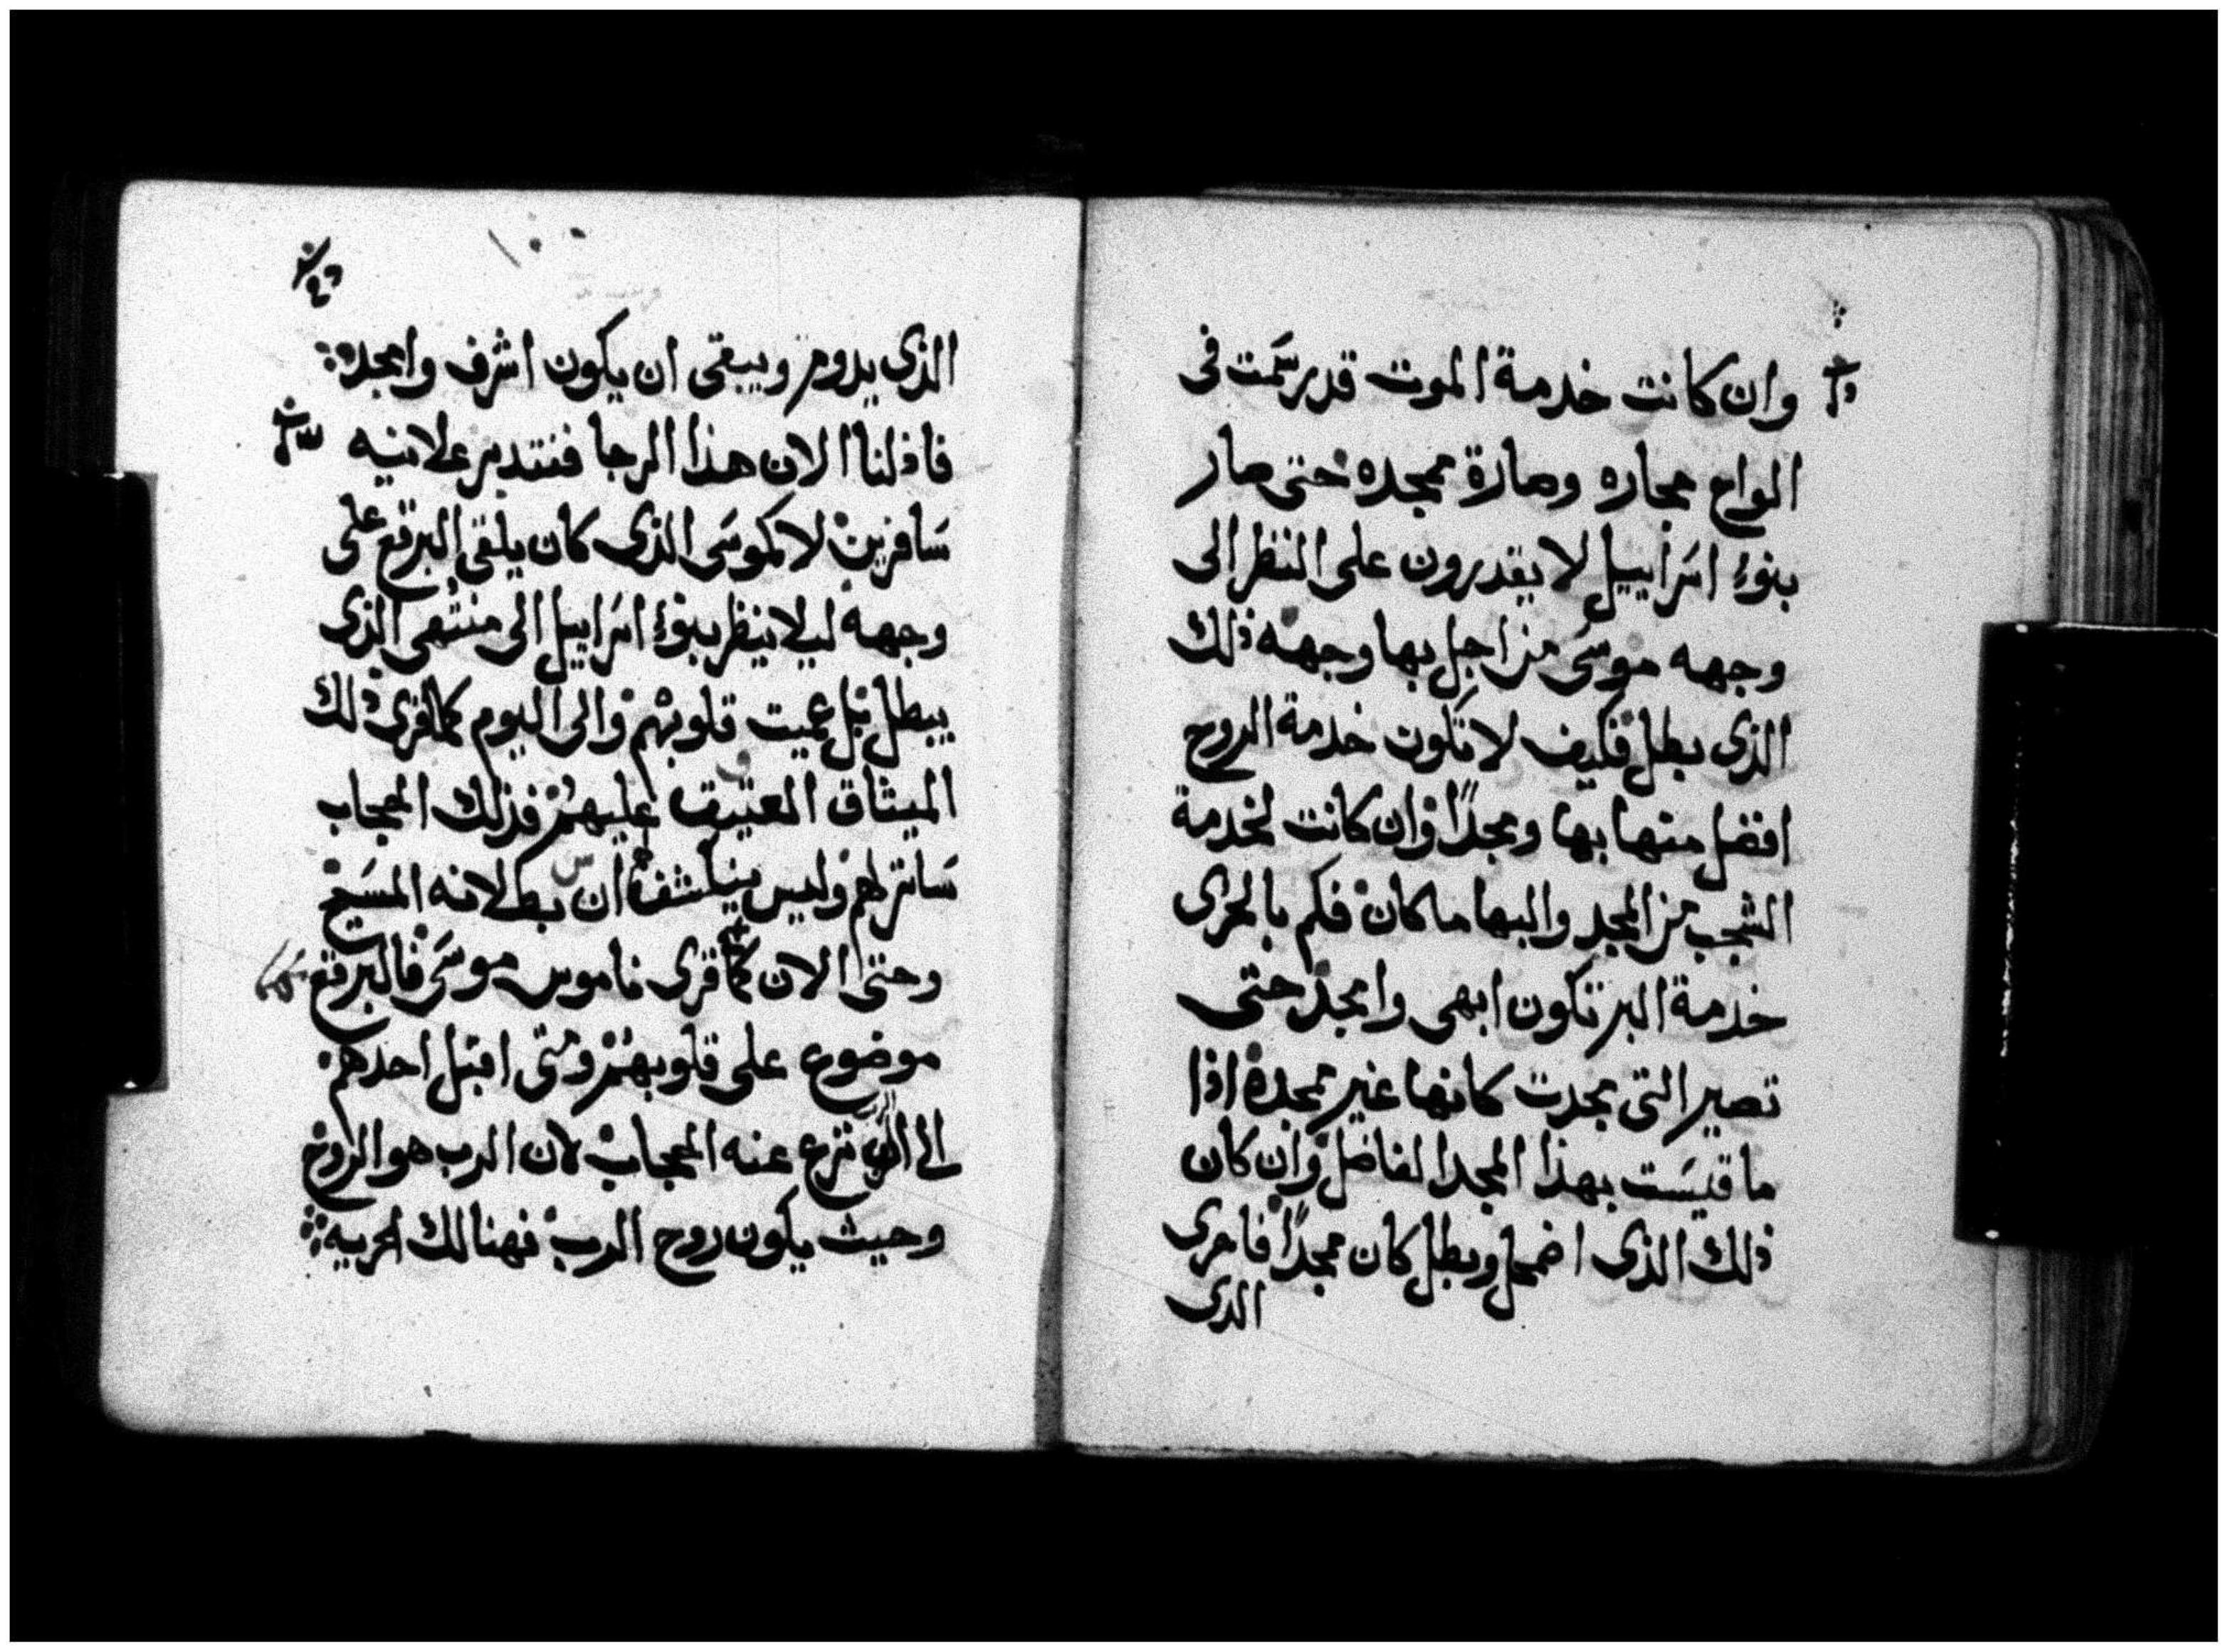 وان كانت خدمة الموت قد رسمت فى
الواح حجاره وصارة ممجده حتى صار
بنوا اسراييل لا يقدرون على النظر الى
وجهه موسى من اجل بها وجهه ذلك
الذى بطل فكيف لا تكون خدمة الروح
افضل منها بها ومجدًا وان كانت لخدمة
الشجب من المجد والبها ما كان فكم بالحرى
خدمة البر تكون ابهى وامجد حتى
تصير التى مجدت كانها غير ممجدة اذا
ما قيست بهذا المجد الفاضل وان كان
ذلك الذى اضمحل وبطل كان ممجدًا فاحرى
الدى
الذى يدوم ويبقى ان يكون اشرف وامجد
فاذ لنا الان هذا الرجا فنتدبر علانيه
سافرين لا كموسى الذى كان يلقى البرقع على
وجهه ليلا ينظر بنوا اسراييل الى منتهى الذى
يبطل بل عميت قلوبهم والى اليوم كما قرى ذلك
الميثاق العتيق عليهم فذلك الحجاب
ساتر لهم وليس ينكشف ان بطلانه المسيح
وحتى الان كما قرى ناموس موسى فالبرقع
موضوع على قلوبهم ومتى اقبل احدهم
الى الرب نزع عنه الحجاب لان الرب هو الروح
وحيث يكون روح الرب فهنالك الحريه